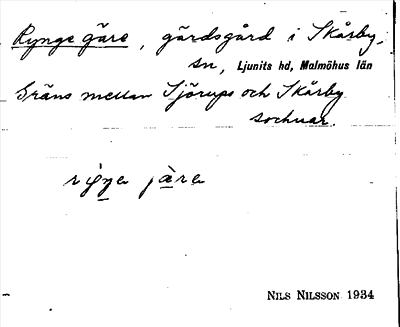 Rynge gäre, gärdsgård i Skårby
sn, Ljunits hd, Malmöhus län
Gräns mellan Sjörups och Skårby
socknar.
NILS NILSSON 1934